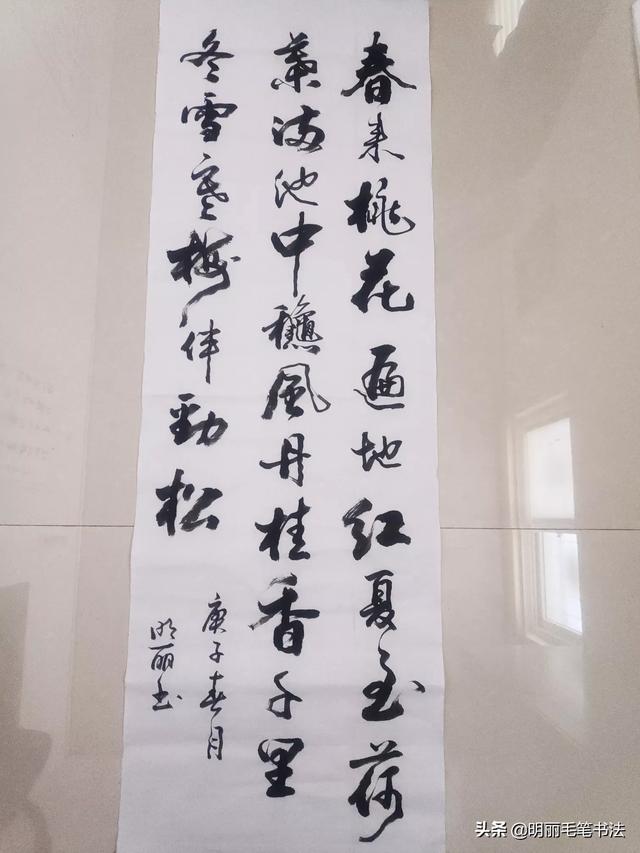 春来桃花遍地红夏至荷
葉满池中穐風丹桂香千里
冬雪寒梅伴勁松
庚子春月
明丽书
头条 @明丽毛笔书法